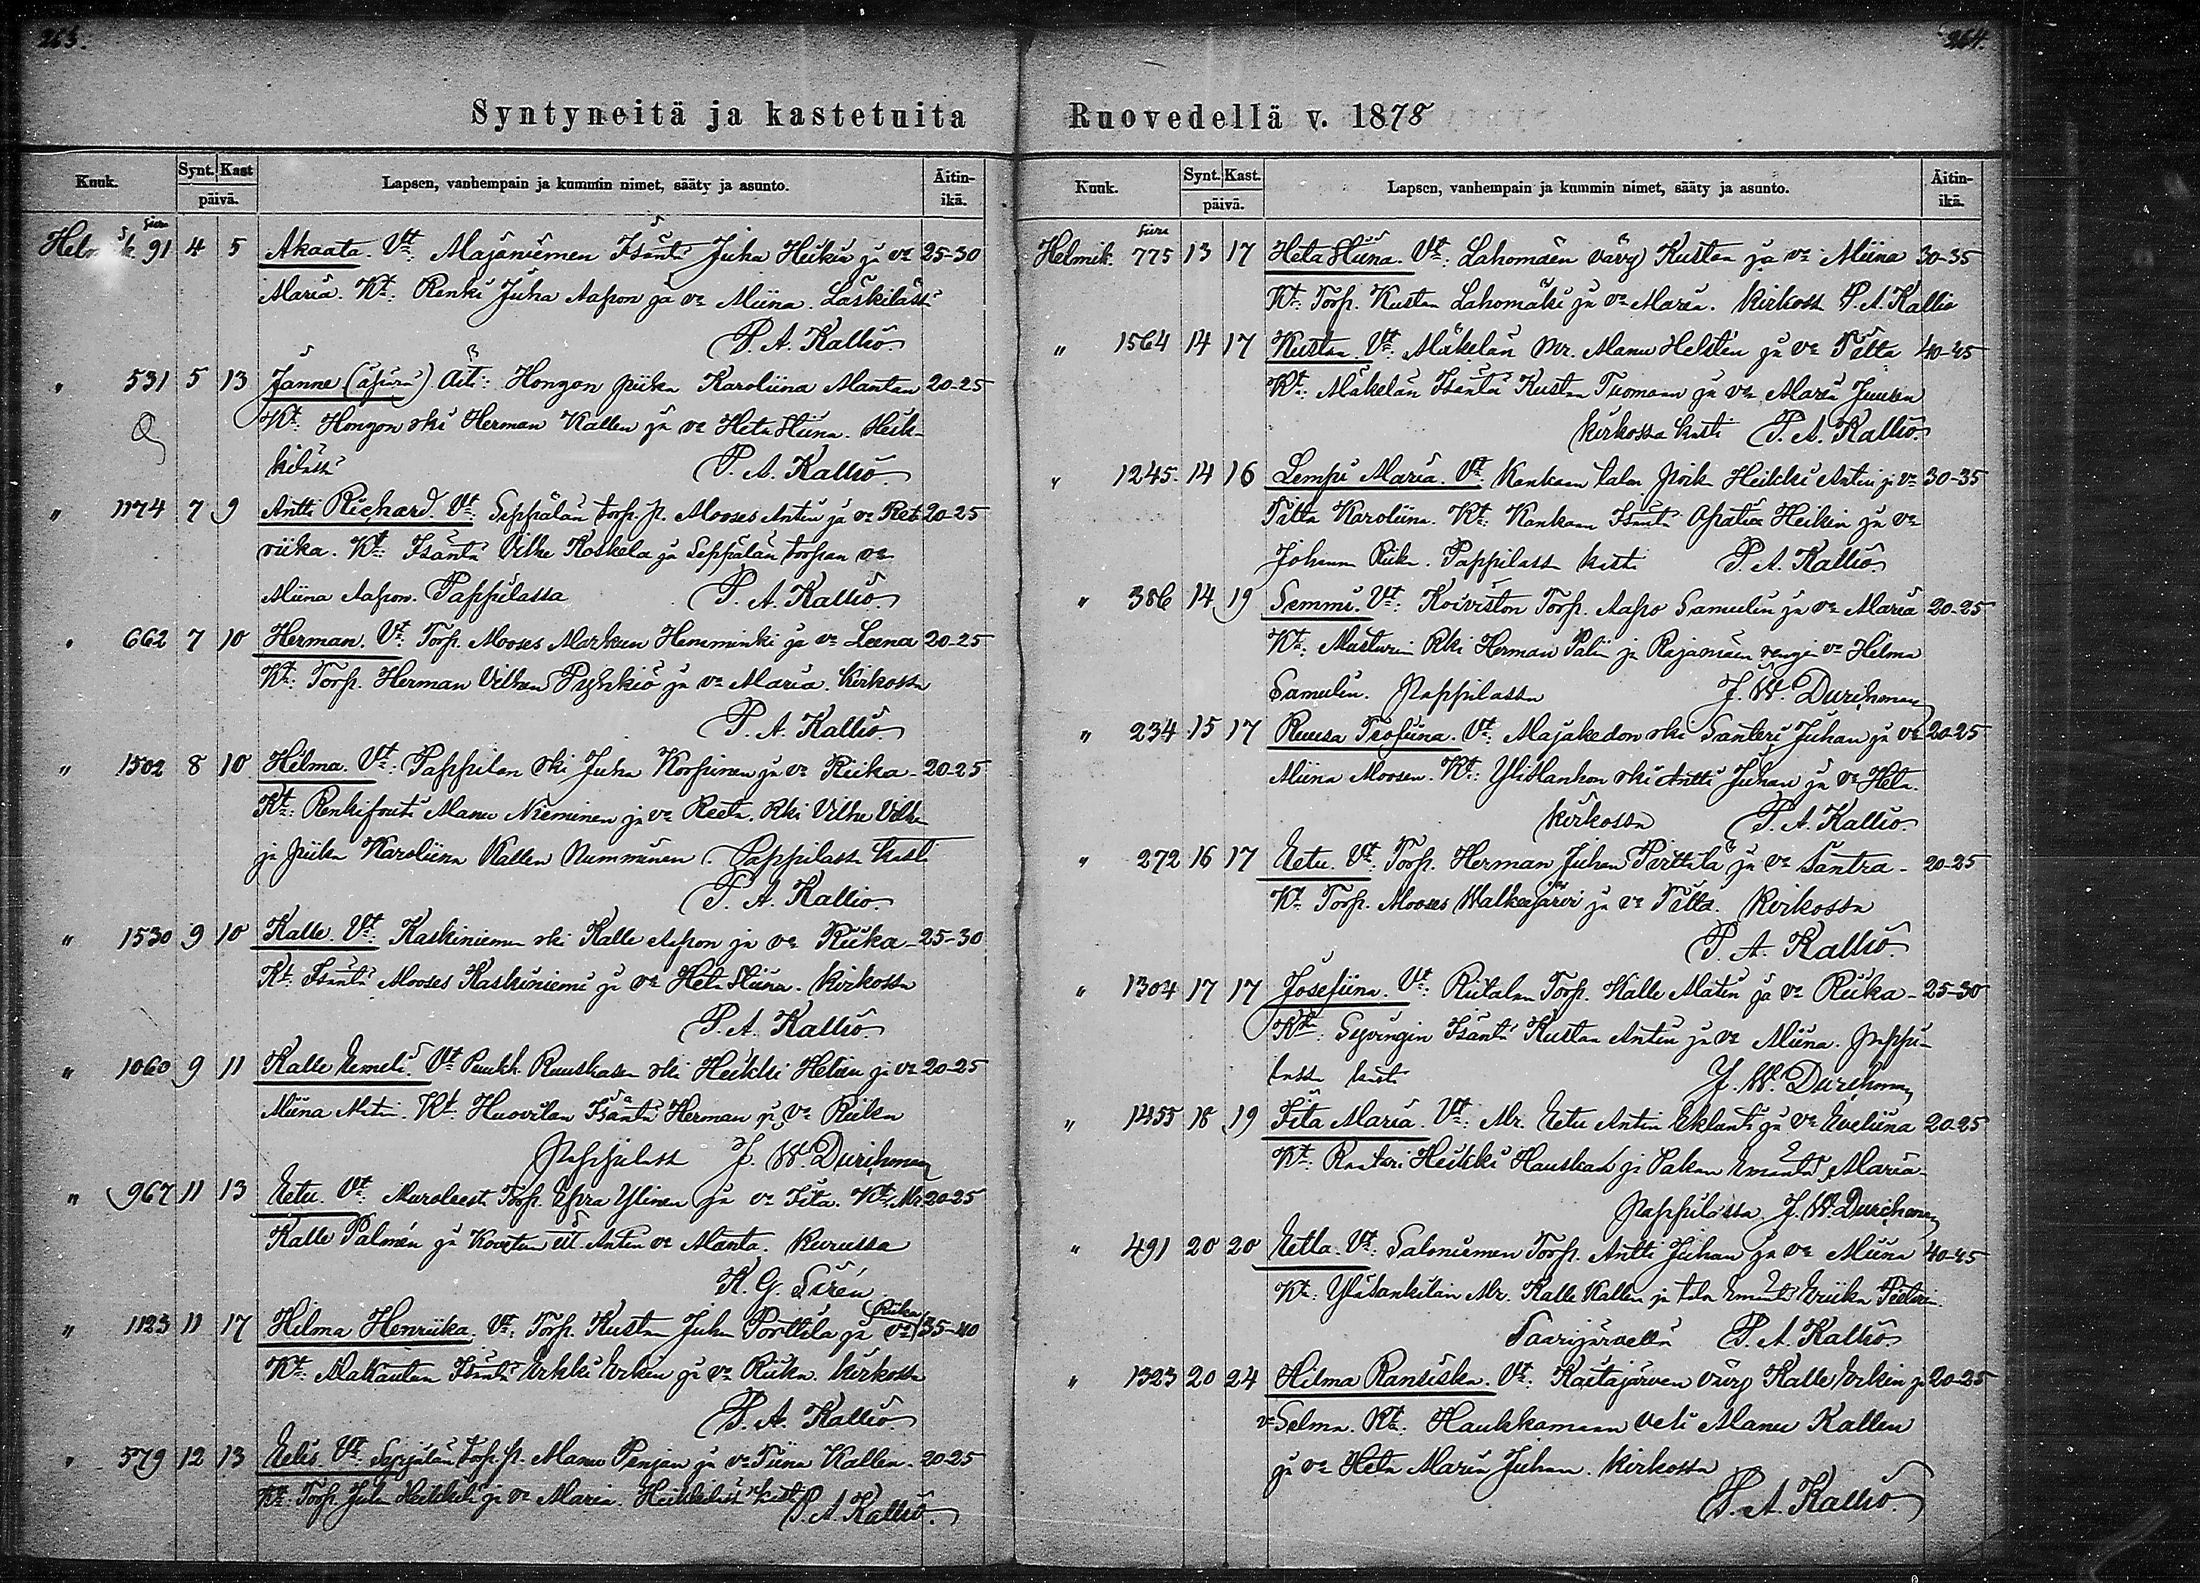 263.
Syntyneitä ja kastetuita
Kuuk.
Synt. Kast
päivä.
Lapsen, vanhempain ja kummin nimet, sääty ja asunto.
Äitin-
ikä.
Helmik. 91 4 5 Akaata. Vt: Majaniemen Isäntä Juha Heikin ja vo 25-30
Maria. Kt. Renki Juha Aapon ja vo Miina. Läskilässä
P. A. Kallio.
" 531 5 13 Janne (äpärä) Äiti: Hongon piika Karoliina Mantan 20-25
Kt: Hongon rki Herman Kallen ja vo Heta Stiina. Heik-
kilässä P. A. Kallio.
" 1174 7 9 Antti Richard. Vt: Seppälän torp. p. Mooses Antin ja vo Ret- 20-25
riika. Kt: Isäntä Vilhe Koskela ja Seppälän torpan vo
Miina Aapon. Pappilassa P. A. Kallio.
" 662 7 10 Herman. Vt: Torp. Mooses Markun Hemminki ja vo Leena 20-25
Kt: Torp. Herman Vilhen Pyhkiö ja vo Maria. Kirkossa
P. A. Kallio.
" 1502 8 10 Hilma. Vt: Pappilan rki Juha Korpinen ja vo Riika - 20-25
Kt: Renkifouti Manu Nieminen ja vo Reeta. Rki Vilhe Vilhe
ja piika Karoliina Kallen Numminen. Pappilassa kasti
P. A. Kallio.
" 1530 9 10 Kalle. Vt: Kaskiniemen rki Kalle Aapon ja vo Riika - 25-30
Kt: Isäntä Mooses Kaskiniemi ja vo Heta Stiina. Kirkossa
P. A. Kallio.
" 1060 9 11 Kalle Eemeli. Vt: Ruuskasen rki Heikki Helin ja vo 20-25
Miina Matin. Kt. Huovilan Isäntä Herman ja vo Riika
Pappilassa J. W. Durchman
" 967 11 13 Eetu. Vt: Muroleest Torp. Efra Ylinen ja vo Fita. Kt: Mr. 20-25
Kalle Palmén ja Antin vo Manta. Kurussa
K. G. Sirén
" 1123 11 17 Hilma Henriika. Vt: Torp. Kustaa Juha Porttila ja vo Riika 35-40
Kt: Alakautan Isäntä Erkki Erkin ja vo Riika. Kirkossa
P. A. Kallio.
" 579 12 13 Eelis. Vt: Seppälän torp. p. Manu Penjan ja vo Tiina Kallen. 20-25
Kt: Torp. Juha Heikkilä ja vo Maria. Heikkilässä kasti P. A. Kallio.
264.
Ruovedellä v. 1878
Kuuk.
Synt. Kast.
päivä.
Lapsen, vanhempain ja kummin nimet, sääty ja asunto.
Äitin-
ikä.
Helmik. 775 13 17 Heta Stiina. Vt: Lahomäen vävy Kustaa ja vo Miina 30-35
Kt: Torp. Kustaa Lahomäki ja vo Maria. Kirkossa P. A. Kallio
" 1564 14 17 Kustaa. Vt: Mäkelän Mr. Manu Helstén ja vo Tilta 40-45
Kt: Mäkelän Isäntä Kustaa Tuomaan ja vo Maria Juusen
Kirkossa kasti P. A. Kallio.
" 1245. 14 16 Lempi Maria. Vt: Kankaan talon poik Heikki Antin ja vo 30-35
Tilta Karoliina. Kt: Kankaan Isäntä Heikin ja vo
Johanna Riika. Pappilassa kasti P. A. Kallio.
" 386 14 19 Semmi. Vt: Koiviston Torp. Aapo Samulin ja vo Maria 20-25
Kt: Rki Herman Palin ja Rajamäen rengin vo Hilma
Samulin. Pappilassa J. W. Durchman
" 234 15 17 Ruusa Teofiina. Vt: Majakedon rki Santeri Juhan ja vo 20-25
Miina Moosen. Kt: Ylihankon rki Antti Juhan ja vo Heta.
Kirkossa P. A. Kallio.
" 272 16 17 Eetu. Vt: Torp. Herman Juhan Perttilä ja vo Santra - 20-25
Kt. Torp. Mooses Walkeajärvi ja vo Tilta. Kirkossa
P. A. Kallio.
" 1304 17 17 Josefiina. Vt: Riitalan Torp. Kalle Matin ja vo Riika - 25-30
Kt: Syvingin Isäntä Kustaa Antin ja vo Miina. Pappi-
lassa kasti J. W. Durchman
" 1455 18 19 Fita Maria. Vt: Mr. Eetu Antin Eklunti ja vo Eveliina 20-25
Kt: Heikki ja Emäntä Maria -
Pappilassa. J. W. Durchman
" 491 20 20 Eetla. Vt: Saloniemen Torp. Antti Juhan ja vo Miina 40-45
Kt: Mr. Kalle Kallen ja talon Emäntä Eriika
Saarijärvellä P. A. Kallio.
" 1323 20 24 Hilma Ransiska. Vt: Kaitajärven vävy Kalle Erkin ja 20-25
vo Selma. Kt: Haukkamaan veli Manu Kallen
ja vo Heta Maria Juhan. Kirkossa
P. A. Kallio.